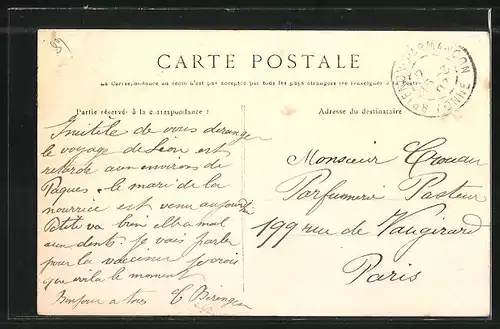 CARTE POSTALE
La Correspondance au recto n'est pas acceptée par tous les pays étrangers (Se renseigner à la Poste)
Partie réservée à la correspondance
Adresse du destinataire
BRIENON-S-ARMANÇON
YONNE
Inutile de vous déranger
le voyage de Léon est
retardé aux environs de
Paques. le mari de la
nourrice est venu aujourd'hui
va bien elle a mal
aux dents. Je vais parler
pour la vacciner Je crois
que voila le moment
Bonjour a tous
Monsieur
Parfumerie Pasteur
199 rue de Vaugirard
Paris